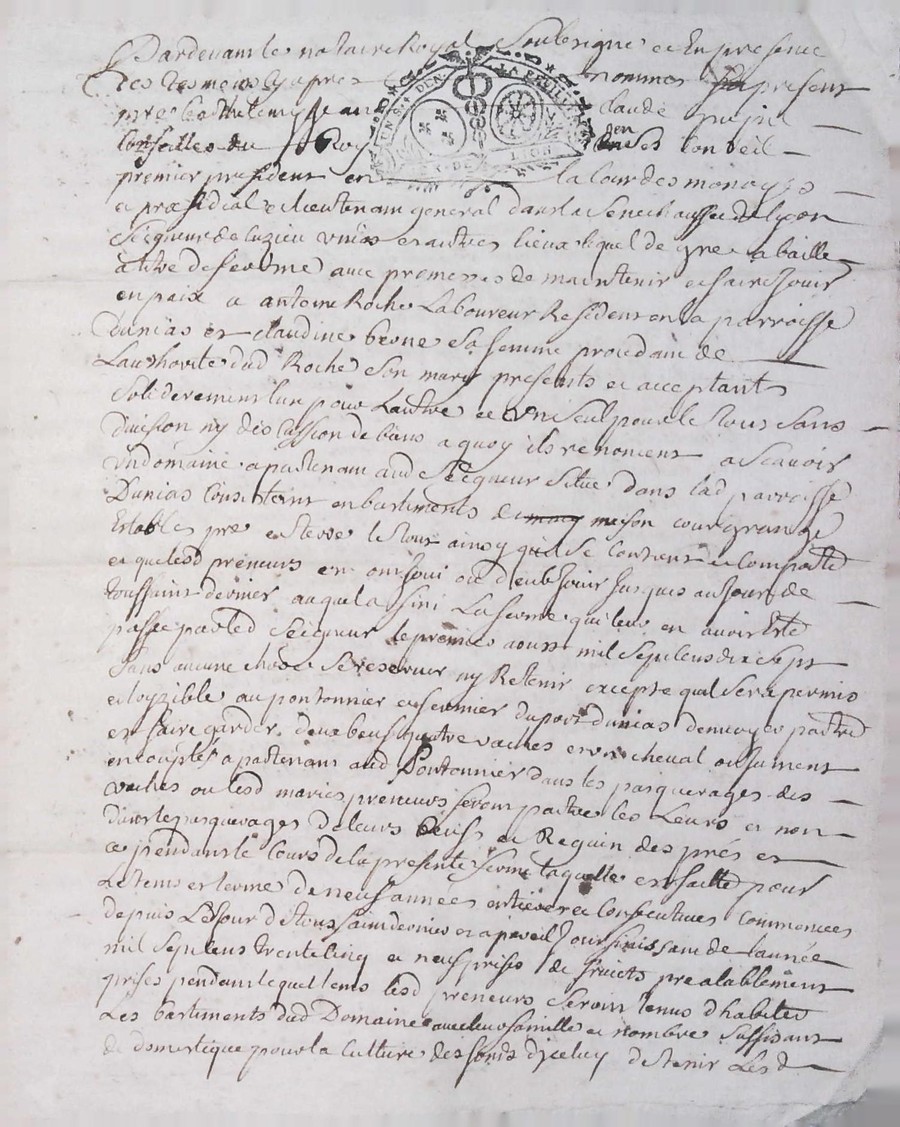 Pardevant le notaire Royal Soubsigne et En presence
des tesmoins cy apres nommes fut present
mre barthelemy Jean claude pupil
Conseiller du Roy en ses Conseil
premier president en la Cour des monoyes
et præsidial et lieutenant general dans la Senechaussee de Lyon
Seigneur de Cuzieu unias et autres lieux lequel de gre a baille
a titre de ferme avec promesses de maintenir et faire Jouir
en paix a antoine Roche Laboureur Resident en la parroisse
dunias et claudine brone Sa femme procedant de
Lauthorite dud Roche Son mary presents et acceptants
Soliderement lun pour Lautre et un Seul pour le tous Sans
division ny discussion de biens a quoy ils renoncent ascavoir
un domaine apartenant aud Seigneur Situe dans lad parroisse
Dunias Consistant en bastiments de maison cour grange
Estables pre et terre le tout ainsy quil se Contient et Comporte
et que lesd preneurs en ont Joui ou deub Jouir Jusques au Jour de
toussaint dernier auquel a fini La ferme qui leur en avoit Esté
passe par led Seigneur le premier aoust mil Sept Cens dix Sept
Sans aucune chose Se reserver ny Retenir excepte quil Sera permis
et loyzible au pontonnier et fermier du port dunias denvoyer paitre
et faire garder deux beufs quatre vaches et un cheval ou Jument
apartenant aud Pontonnier dans les pasquerages des
vaches ou lesd maries preneurs feront paitre les Leurs et non
dans les pasquerages de leurs beufs et Reguin des prés et
ce pendant le Cours de la presente ferme laquelle est faitte pour
Le tems et terme de neuf années entieres et Consecutives Commencees
depuis Led Jour de toussaint dernier et a pareil Jour finissant de lannée
mil Sept Cens trente Cinq et neuf prises de fruicts prealablement
prises pendant lequel tems lesd preneurs Seront tenus dhabiter
Les bastiments dud Domaine avec leur famille et nombre Suffisant
de domestique pour la Culture des fonds dyceluy de tenir Lesd
GEN. DE LYON